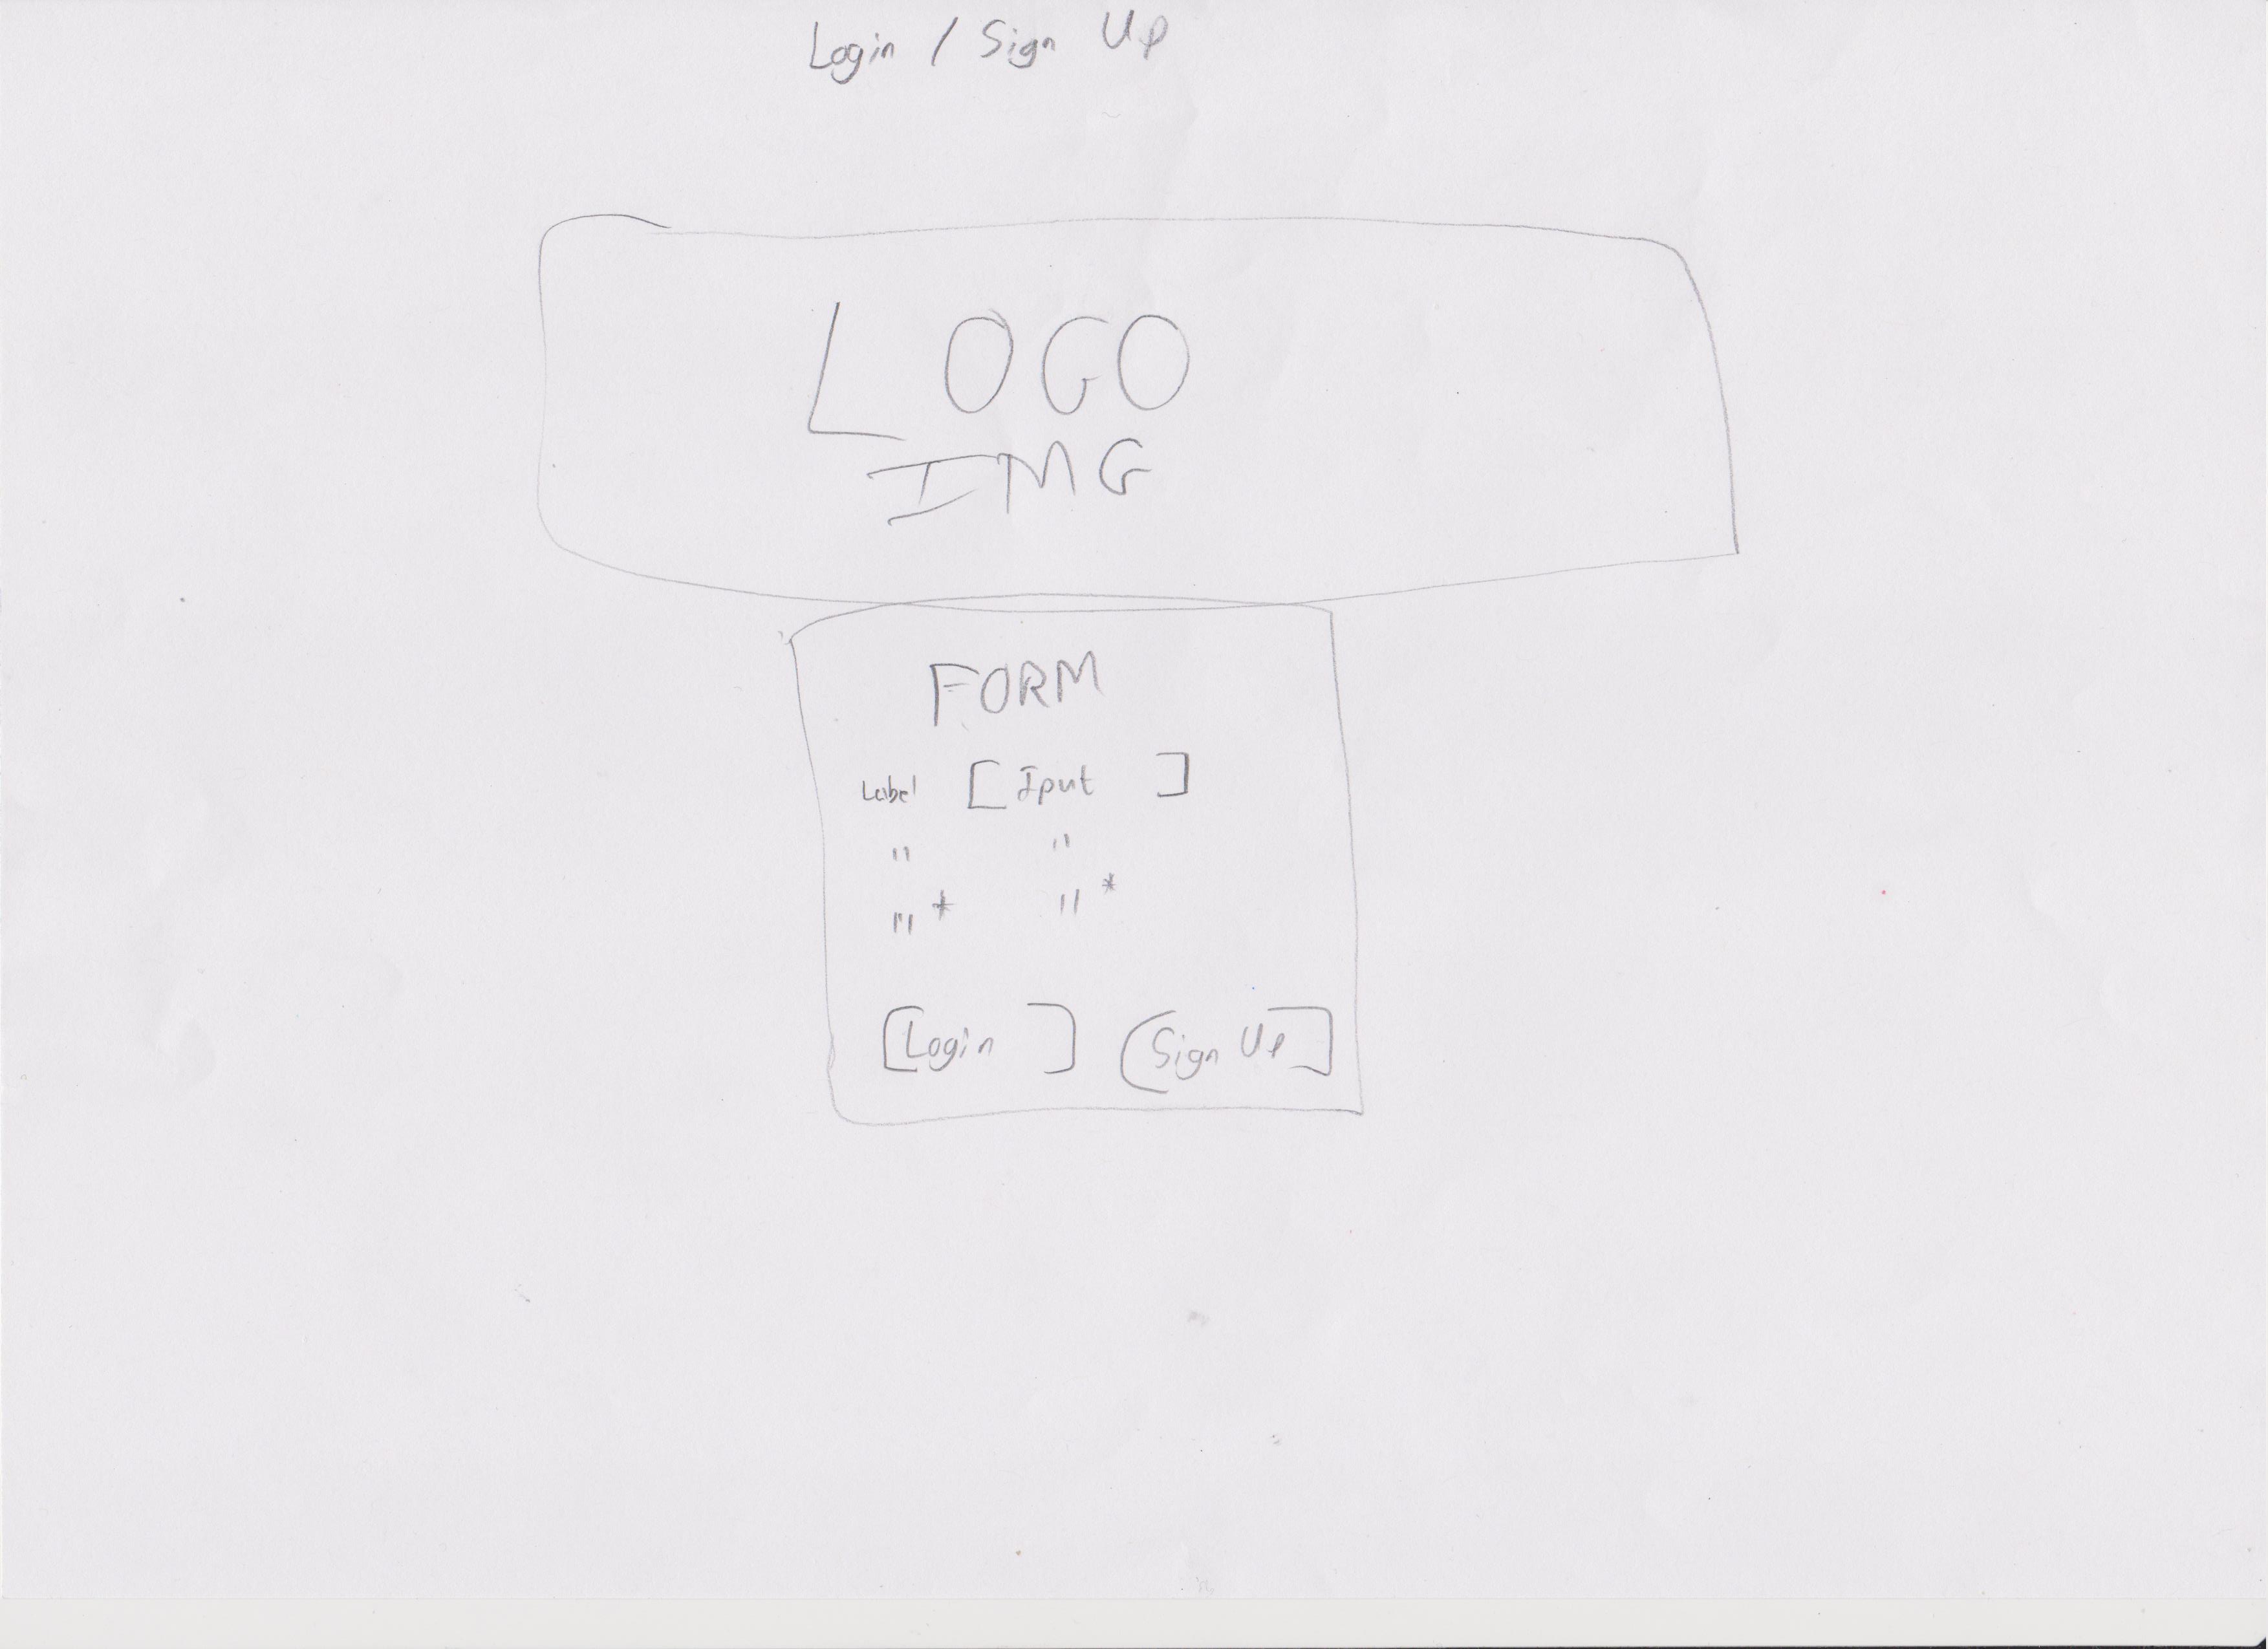 Login / Sign Up
LOGO
IMG
FORM
Label [Iput ]
" "
"* "*
[Login ] (Sign Up]